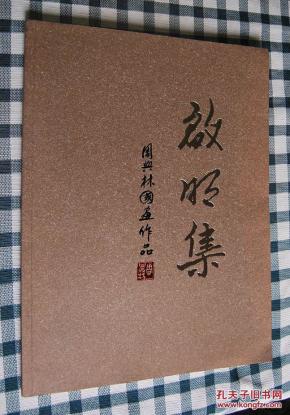 啟明集
周興林國画作品
孔夫子旧书网